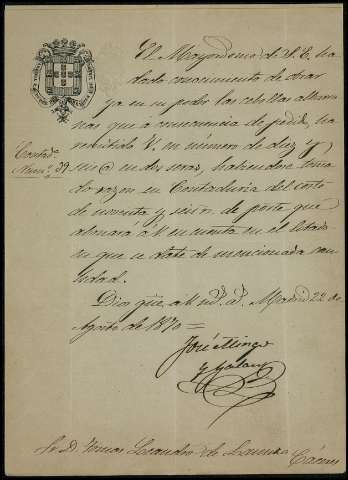 El Mayordomo de S. E. ha
dado conocimiento de obrar
ya en su poder las
que á consecuencia de
recibido V. en número de diez y
en dos seras, habiendose toma
do razon en Contaduria del coste
de noventa y seis r. de porte que
abonará á V. en cuenta en el
en que se date de mencionada can
tidad.
Contad.a
Num.o 39
Dios gue. á V. m.s a.s Madrid 22 de
Agosto de 1870 =
José
y Galan
Sr. D. Tomas Leandro de
Cáceres